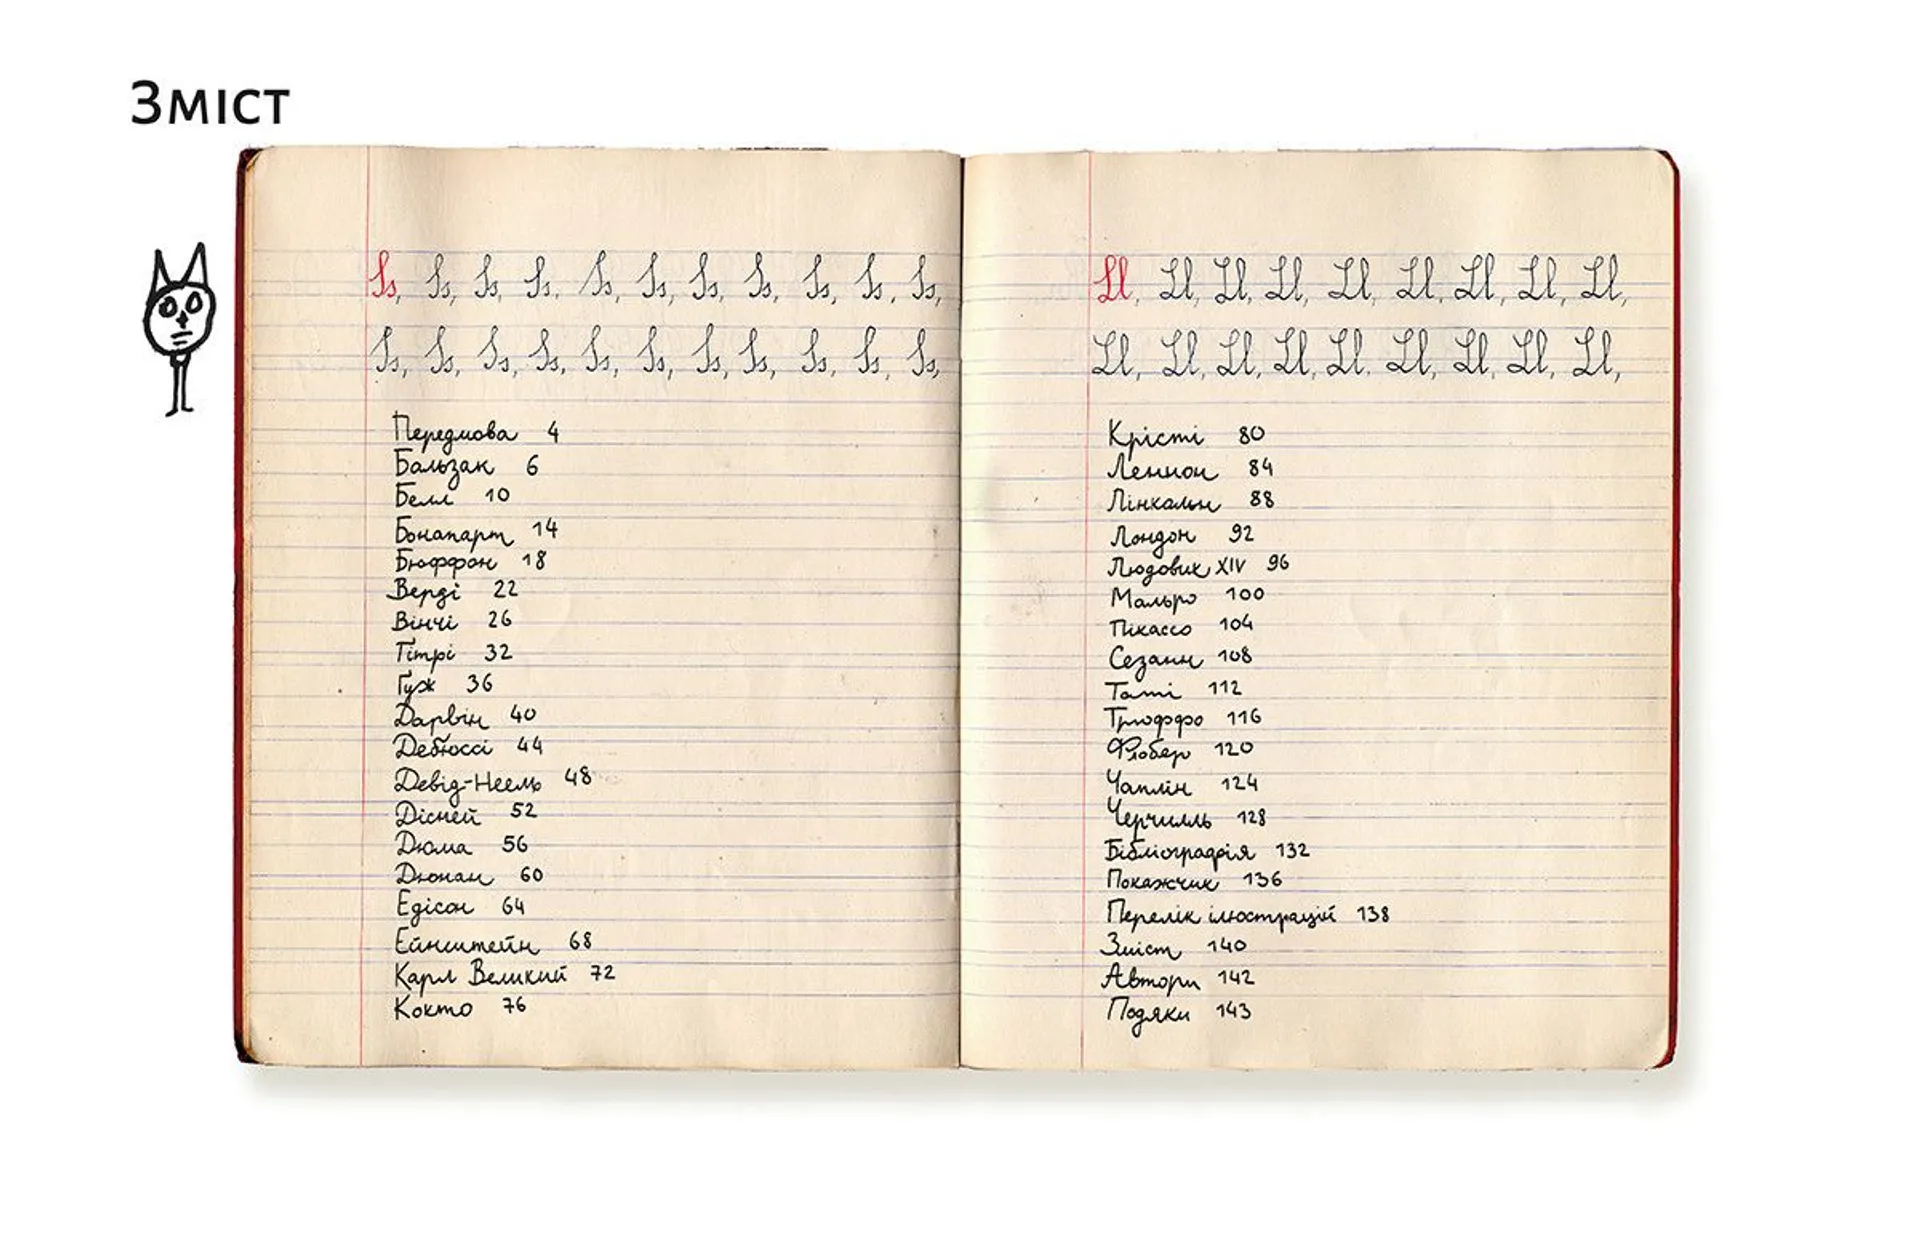 Зміст
Ss, Ss, Ss, Ss, Ss, Ss, Ss, Ss, Ss, Ss, Ss,
Ss, Ss, Ss, Ss, Ss, Ss, Ss, Ss, Ss, Ss, Ss,
Передмова 4
Бальзак 6
Белл 10
Бонапарт 14
Бюффон 18
Верді 22
Вінчі 26
Гітрі 32
Ґуж 36
Дарвін 40
Дебюссі 44
Девід-Неель 48
Дісней 52
Дюма 56
Дюнан 60
Едісон 64
Ейнштейн 68
Карл Великий 72
Кокто 76
Ll, Ll, Ll, Ll, Ll, Ll, Ll, Ll, Ll,
Ll, Ll, Ll, Ll, Ll, Ll, Ll, Ll, Ll,
Крісті 80
Леннон 84
Лінкольн 88
Лондон 92
Людовик XIV 96
Мальро 100
Пікассо 104
Сезанн 108
Таті 112
Трюффо 116
Флобер 120
Чаплін 124
Черчилль 128
Бібліографія 132
Покажчик 136
Перелік ілюстрацій 138
Зміст 140
Автори 142
Подяки 143